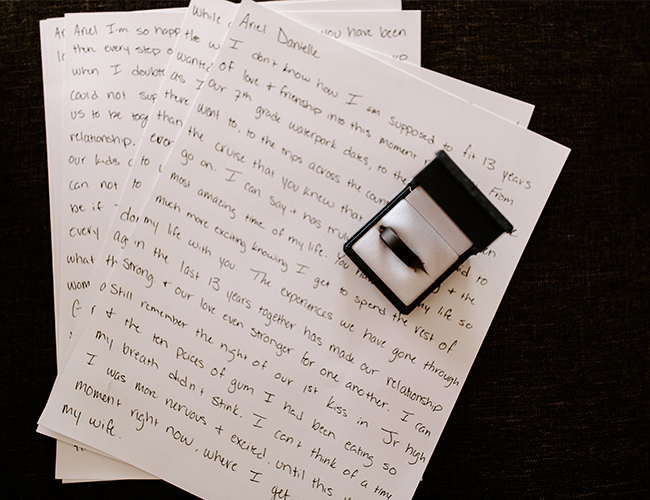 Ariel Danielle
I don't know how I am supposed to fit 13 years
of love & friendship into this moment. From
our 7th grade waterpark dates, to the
want to, to the trips across the coun
the cruise that you knew that
go on. I can say it has trul
most amazing time of my life. You
much more exciting knowing I get to spend the rest of
my life with you. The experiences we have gone through
in the last 13 years together has made our relationship
Strong & our love even stronger for one another. I can
Still remember the night of our 1st kiss in Jr high
& the ten pieces of gum I had been eating so
my breath didn't stink. I can't think of a time
I was more nervous & excited until this
moment right now, where I get
my wife.
my life so
& the
to
While
you have been
Ariel I'm so happ
then every step o
when I doubte
could not sup
us to be tog
relationship.
our kids
can not
be if
every
what
wom
the w
wanted
as I
there
than
ever
to
to
do
ag
th